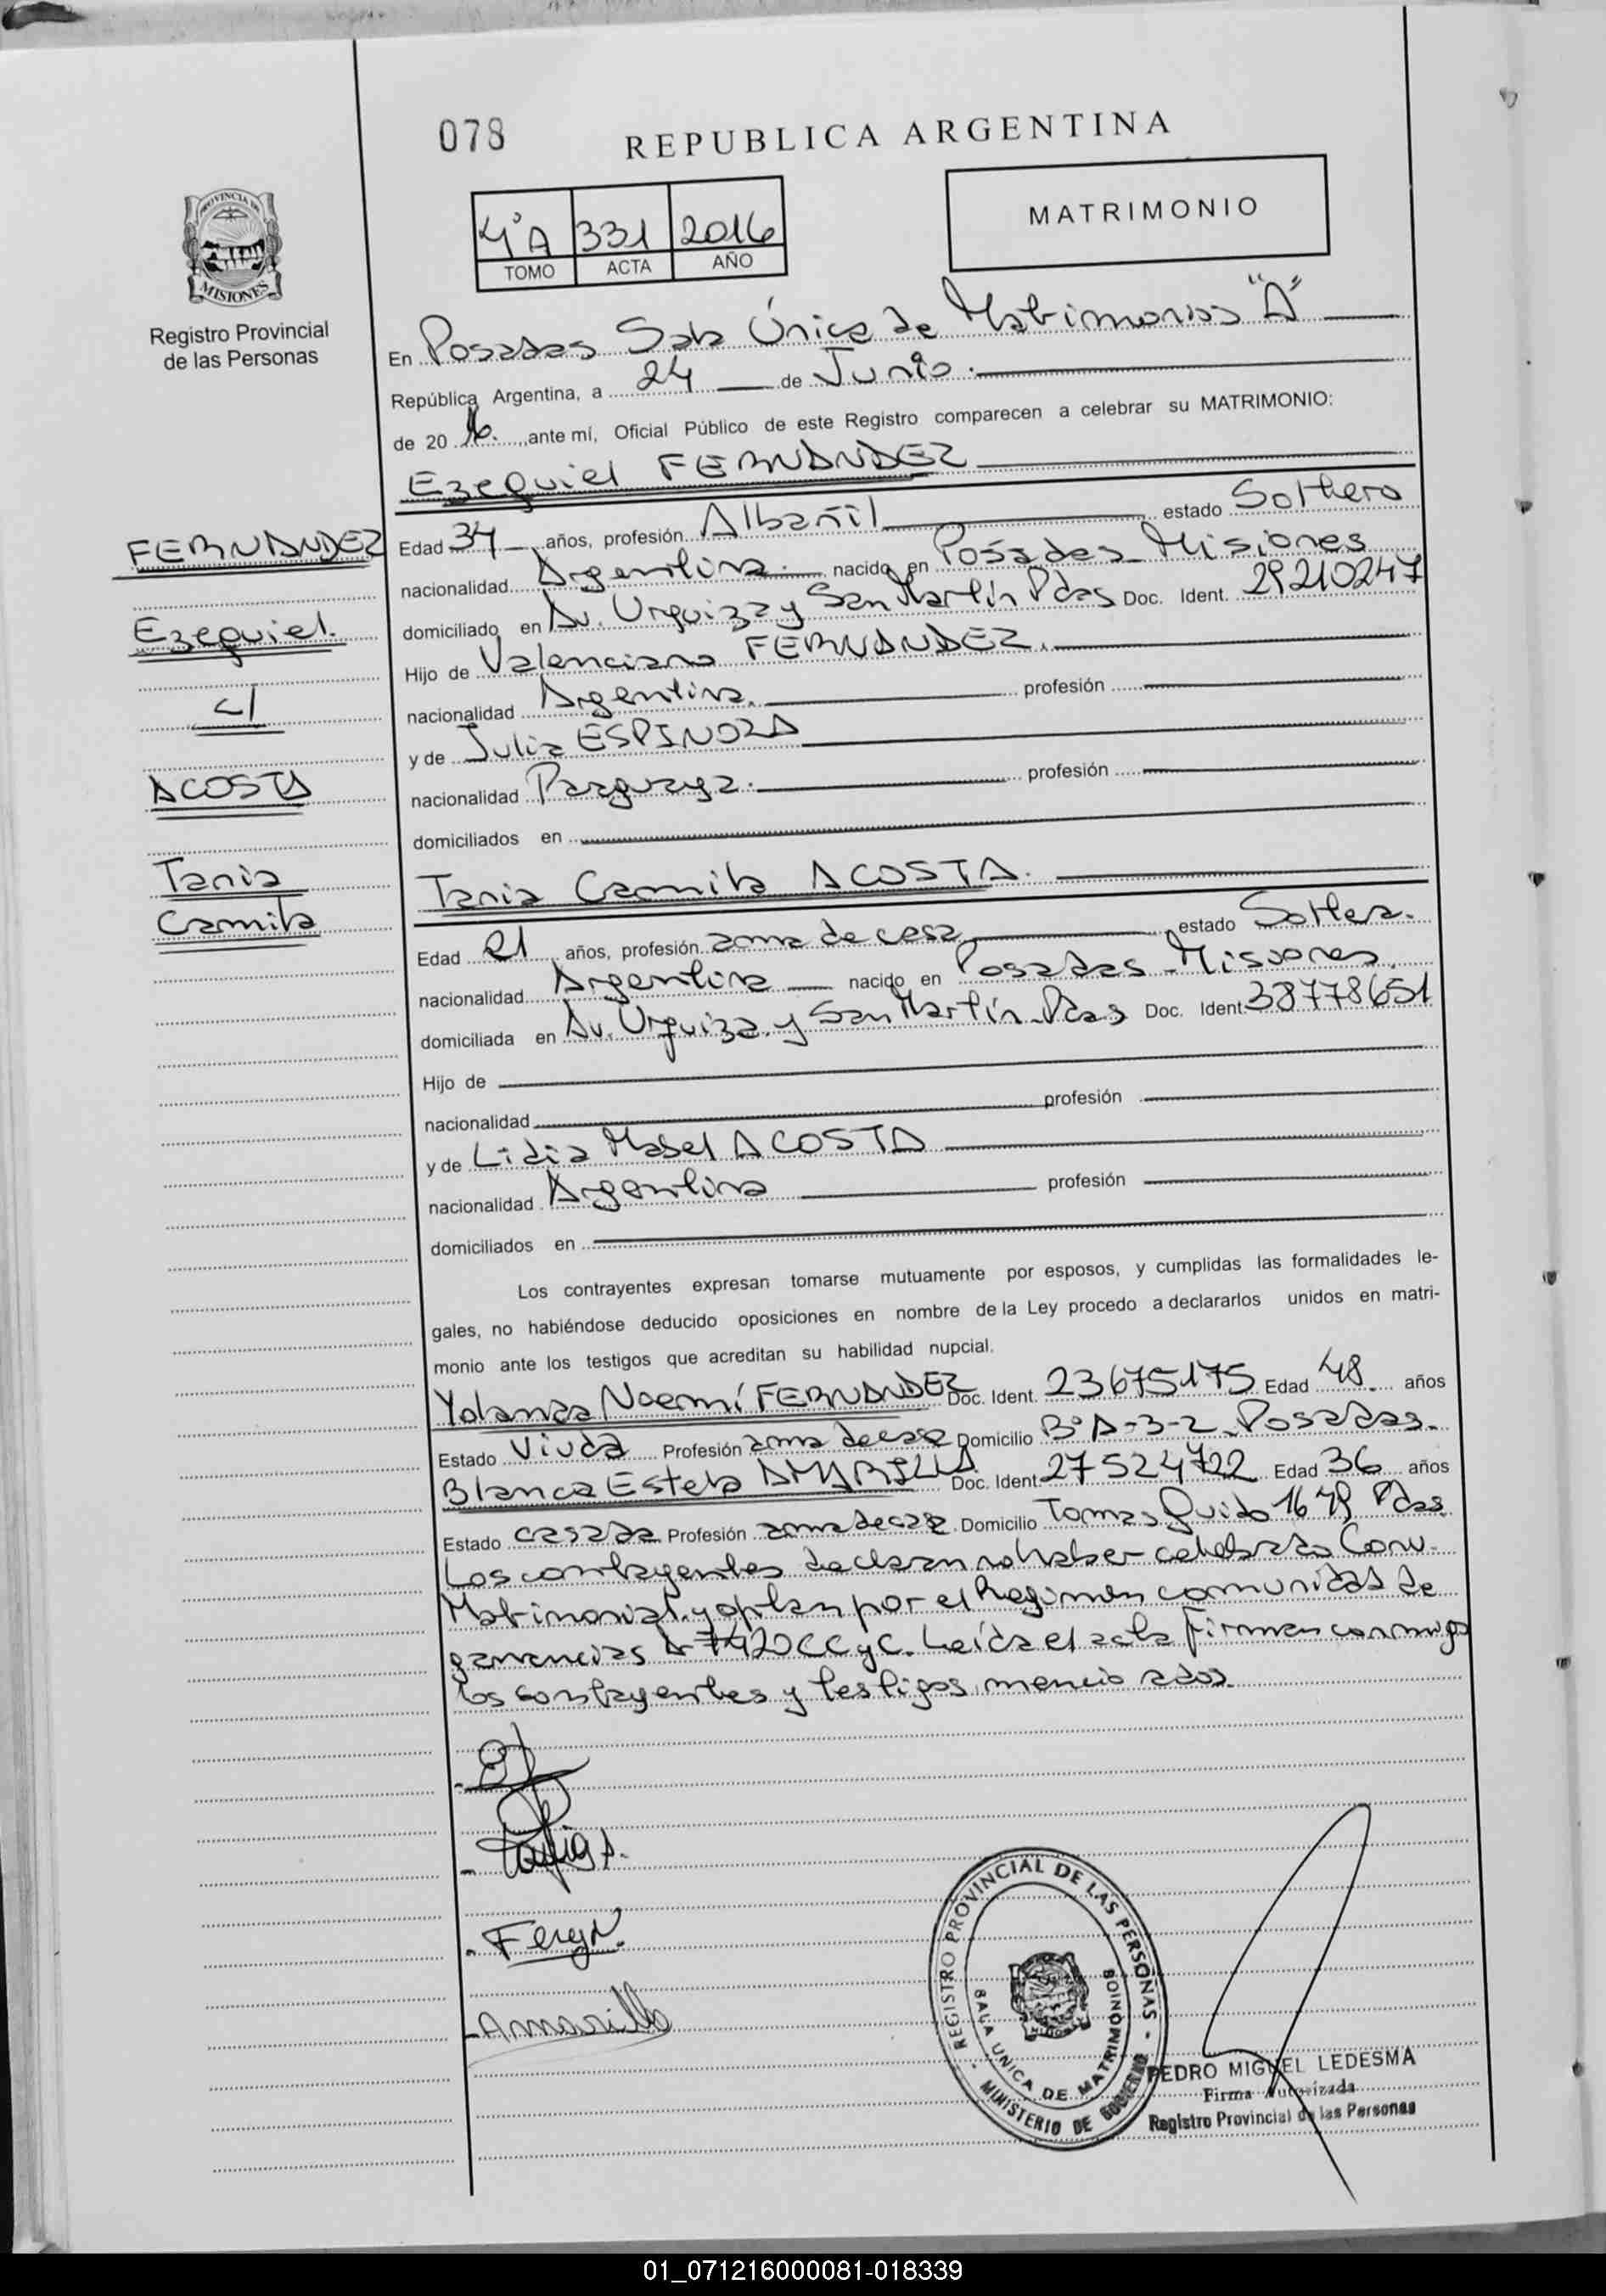 078
REPUBLICA ARGENTINA
4ºA 331 2016
TOMO ACTA AÑO
MATRIMONIO
PROVINCIA DE
MISIONES
Registro Provincial
de las Personas
En Posadas Sala Única de Matrimonios "A"
República Argentina, a 24 de Junio.
de 20 16. ante mí, Oficial Público de este Registro comparecen a celebrar su MATRIMONIO:
Ezequiel FERNANDEZ
FERNANDEZ
Ezequiel.
c/
ACOSTA
Tania
Camila
Edad 34 años, profesión Albañil estado Soltero
nacionalidad Argentina. nacido en Posadas Misiones
domiciliado en Av. Urquiza y San Martín Pdas Doc. Ident. 29210247
Hijo de Valenciano FERNANDEZ.
nacionalidad Argentina. profesión
y de Julia ESPINOZA
nacionalidad Paraguaya. profesión
domiciliados en
Tania Camila ACOSTA.
Edad 21 años, profesión ama de casa estado Soltera.
nacionalidad Argentina nacido en Posadas - Misiones.
domiciliada en Av. Urquiza y San Martín - Pdas Doc. Ident. 38778651
Hijo de
nacionalidad profesión
y de Lidia Mabel ACOSTA
nacionalidad Argentina profesión
domiciliados en
Los contrayentes expresan tomarse mutuamente por esposos, y cumplidas las formalidades le-
gales, no habiéndose deducido oposiciones en nombre de la Ley procedo a declararlos unidos en matri-
monio ante los testigos que acreditan su habilidad nupcial.
Yolanda Noemí FERNANDEZ Doc. Ident. 23675175 Edad 48 años
Estado Viuda Profesión ama de casa Domicilio Bº A-3-2 Posadas.
Blanca Estela AMARILLA Doc. Ident. 27524722 Edad 36 años
Estado casada Profesión ama de casa Domicilio Tomas Guido 1679 Pdas.
Los contrayentes declaran no haber celebrado Conv.
Matrimonial y optan por el Regimen comunidad de
ganancias Ar 7420 CC y C. Leída el acta firman conmigo
los contrayentes y testigos mencio ados.
Tania A.
FeryN.
Amarilla
REGISTRO PROVINCIAL DE LAS PERSONAS
SALA UNICA DE MATRIMONIOS
MINISTERIO DE GOBIERNO
PEDRO MIGUEL LEDESMA
Firma Autorizada
Registro Provincial de las Personas
01_071216000081-018339